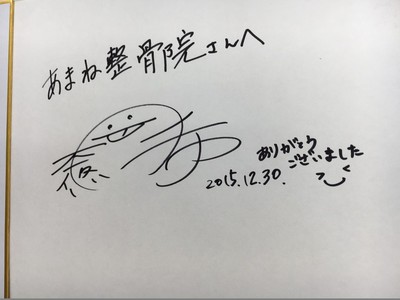 あまね整骨院さんへ
ありがとう
ございました
2015.12.30.